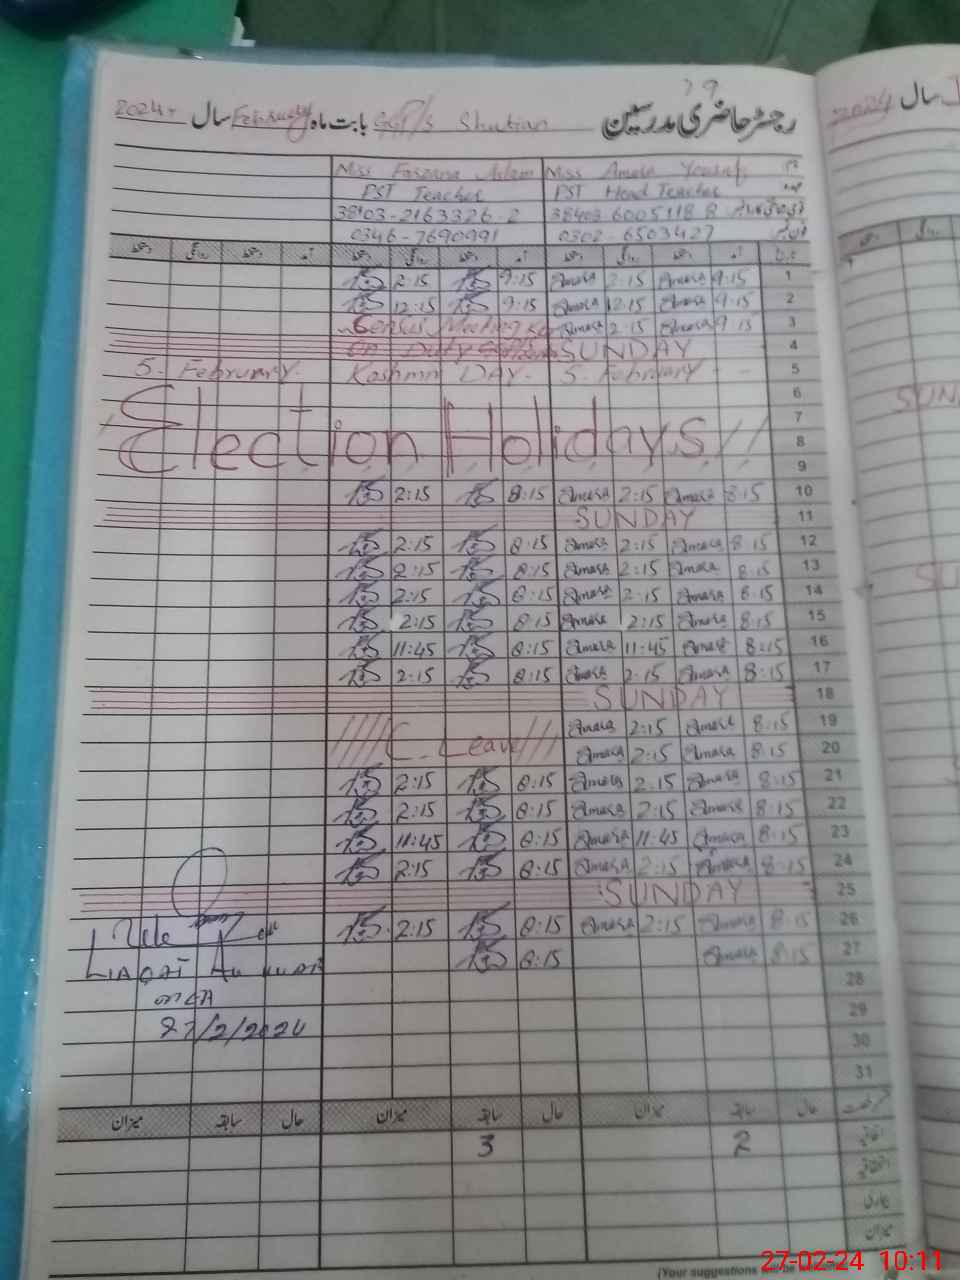 رجسٹر حاضری مدرسین GGP/S Shutian بابت ماہ February سال 2024
2024 سال
Miss Amara Yousaf Miss Farzana Aslam
PST Head Teacher PST Teacher
38403-6005118 8 38403-2163326-2
0302-6503427 0346-7690991
2:15 9:15 Amara 2:15 Amara 9:15 1
12:15 9:15 Amara 12:15 Amara 9:15 2
Census Meeting Amara 2:15 Amara 9:15 3
On Duty SUNDAY 4
5. February. Kashmir DAY. 5. February 5
6
Election Holidays // 7
8
9
2:15 8:15 Amara 2:15 Amara 8:15 10
SUNDAY 11
2:15 8:15 Amara 2:15 Amara 8:15 12
2:15 8:15 Amara 2:15 Amara 8:15 13
2:15 8:15 Amara 2:15 Amara 8:15 14
2:15 8:15 Amara 2:15 Amara 8:15 15
11:45 8:15 Amara 11:45 Amara 8:15 16
2:15 8:15 Amara 2:15 Amara 8:15 17
SUNDAY 18
Amara 2:15 Amara 8:15 19
//// C. Leave /// Amara 2:15 Amara 8:15 20
2:15 8:15 Amara 2:15 Amara 8:15 21
2:15 8:15 Amara 2:15 Amara 8:15 22
11:45 8:15 Amara 11:45 Amara 8:15 23
2:15 8:15 Amara 2:15 Amara 8:15 24
SUNDAY 25
2:15 8:15 Amara 2:15 Amara 8:15 26
8:15 Amara 8:15 27
LIAQAT
MEA
27/2/2024
28
29
30
31
حال سابقہ میزان حال سابقہ میزان حال سابقہ میزان
2 3
اتفاقیہ
میزان
(Your suggestions will be
27-02-24 10:11